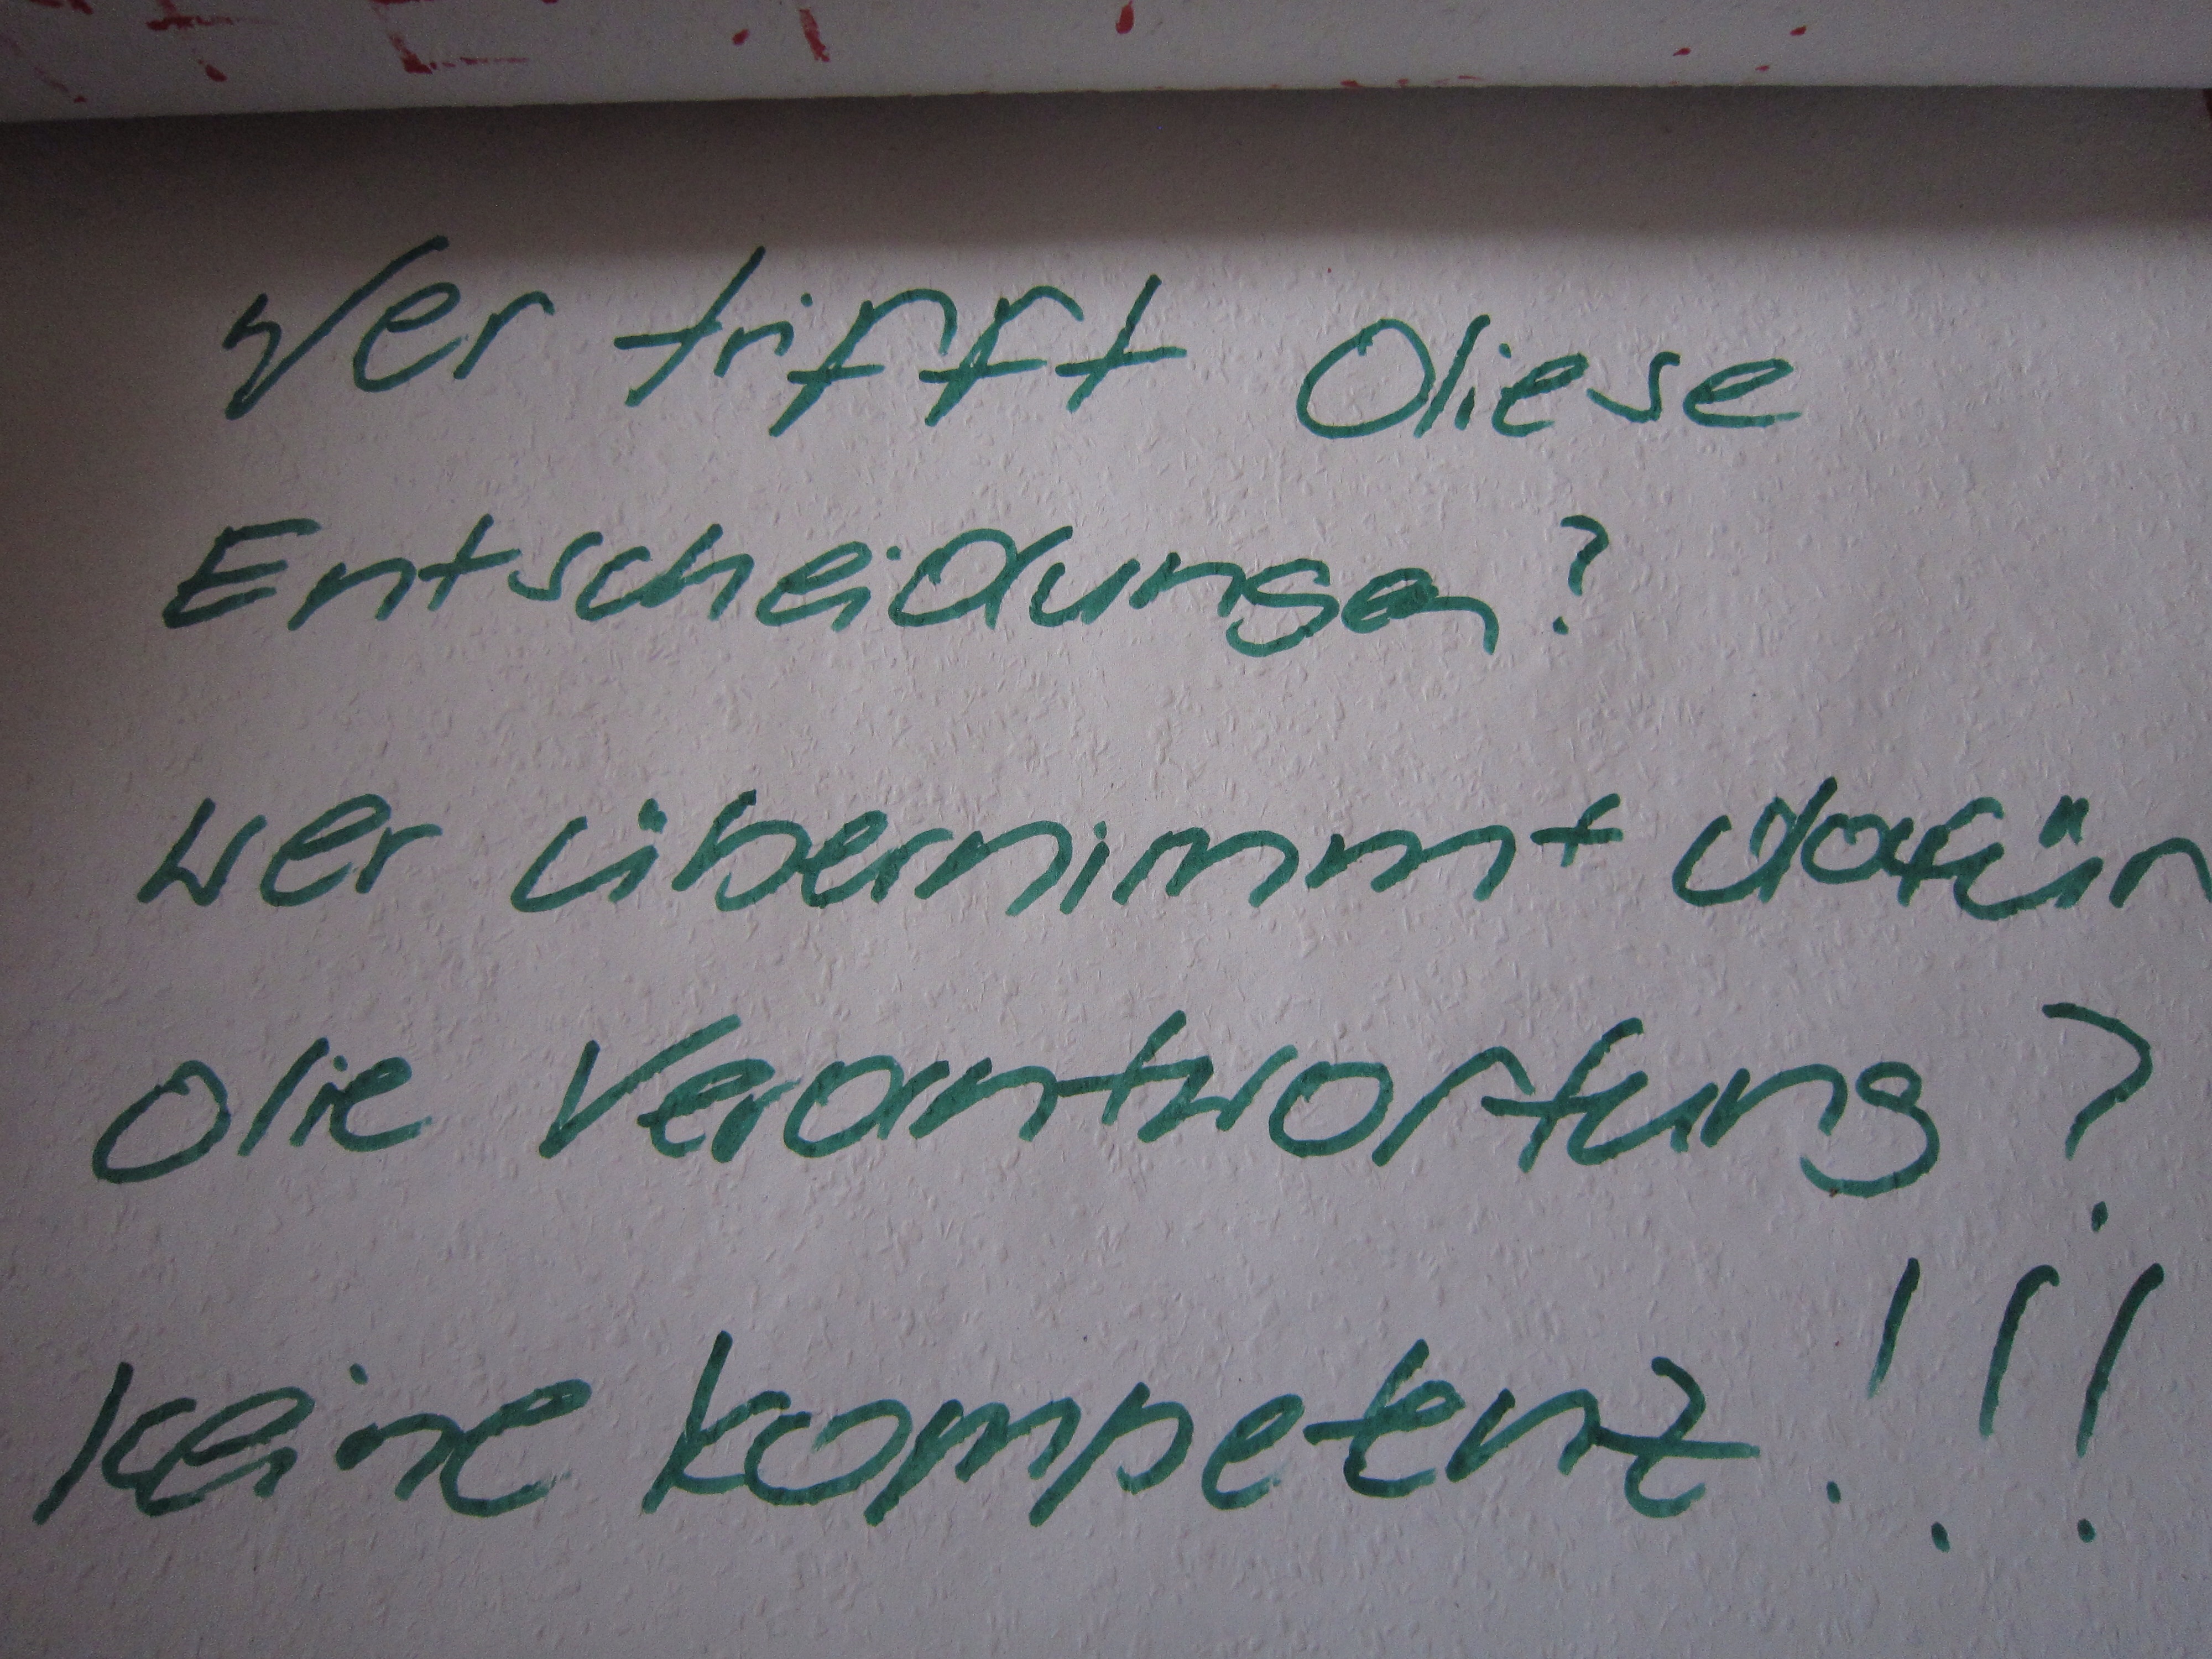 Wer trifft diese
Entscheidungen?
Wer übernimmt dafür
die Verantwortung?
keine kompetenz!!!